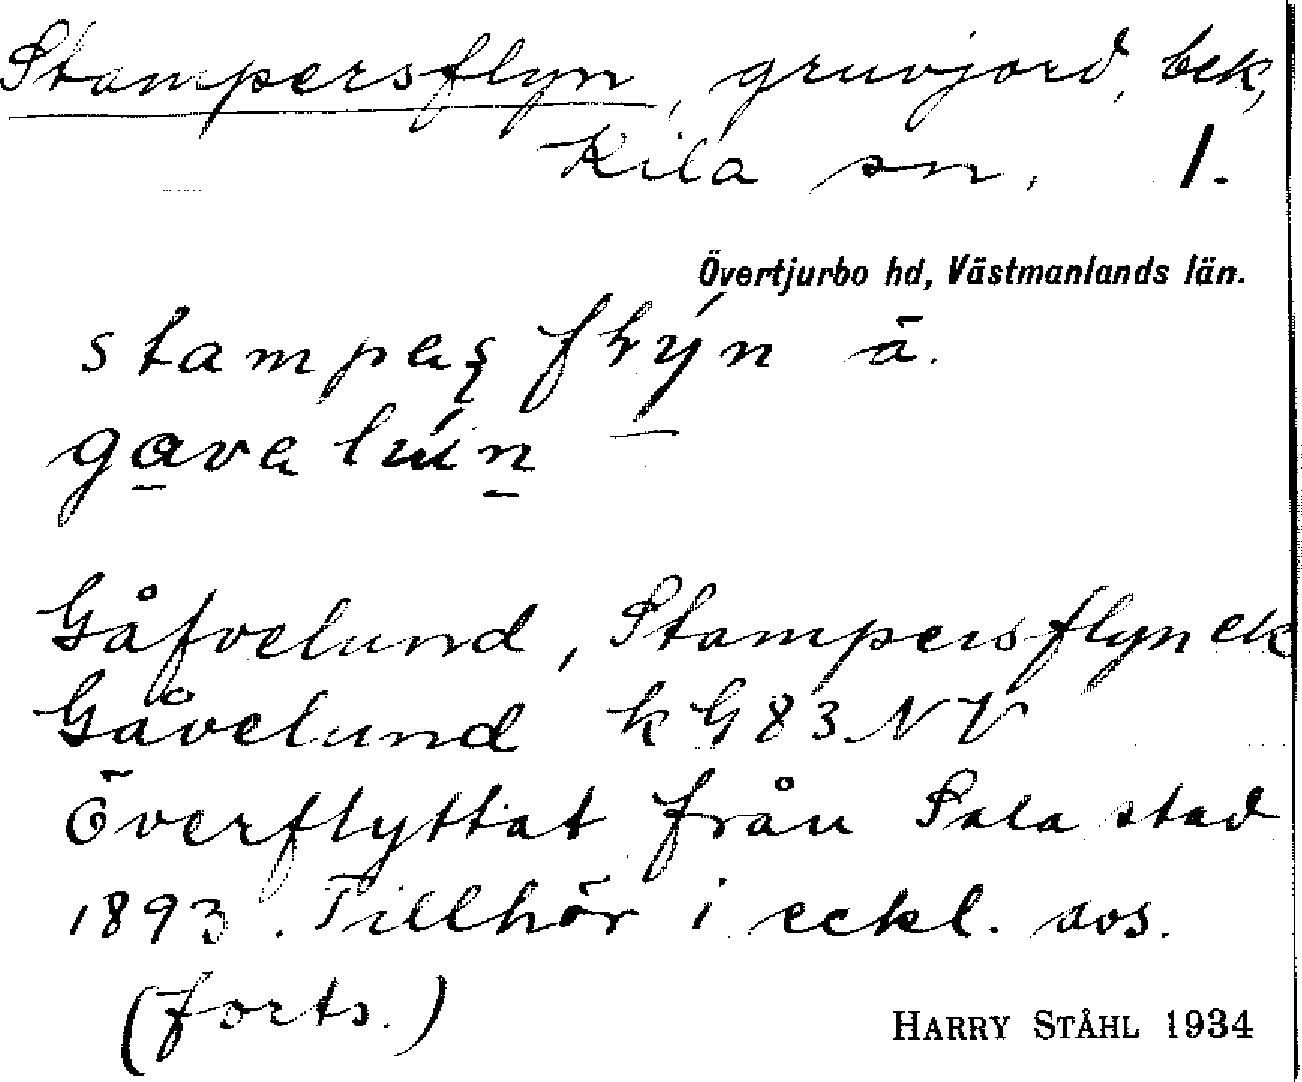 Stampersflyn, gruvjord, bek,
Kila sn. 1.
Övertjurbo hd, Västmanlands län.
stampas flýn ā.
gava lún
Gåfvelund, Stampersflyn ek
Gåvelund k G83 NV
Överflyttat från Sala stad
1893. Tillhör i eckl. avs.
(forts.)
HARRY STÅHL 1934